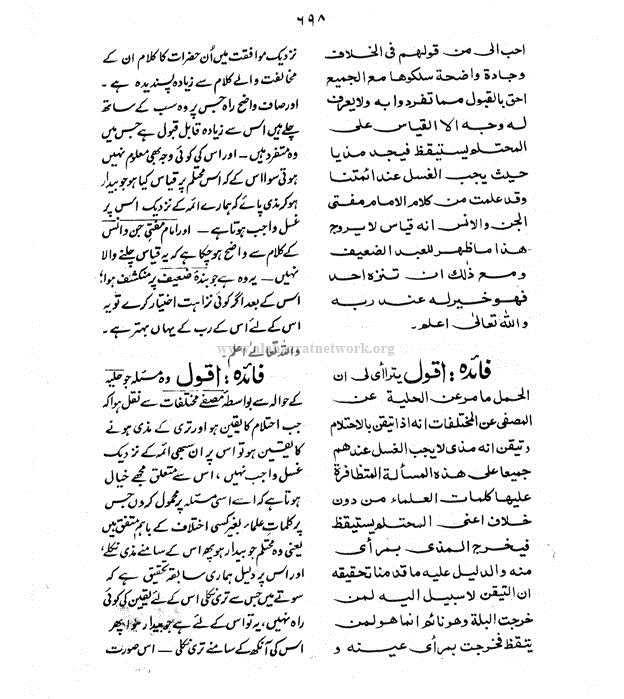 ٦٩٨
احب الی من قولهم فی الخلاف
وجادة واضحة سلكوها مع الجميع
احق بالقبول مما تفردوا به ولا يعرف
له وجه الا القياس علی
المحتلم يستيقظ فيجد مذيا
حيث يجب الغسل عند ائمتنا
وقد علمت من كلام الامام مفتی
الجن والانس انه قياس لا يروج
هذا ما ظهر للعبد الضعيف
ومع ذلك ان تنزه احد
فهو خير له عند ربه
والله تعالیٰ اعلم۔
فائدہ: اقول يتراأی لی ان
الحمل ما مر عن الحلية عن
المصفی عن المختلفات انه اذا تيقن بالاحتلام
وتيقن انه مذی لا يجب الغسل عندهم
جميعا علی هذه المسألة المتظافرة
عليها كلمات العلماء من دون
خلاف اعنی المحتلم يستيقظ
فيخرج المذی بمرأی
منه والدليل عليه ما قدمنا تحقيقه
ان التيقن لا سبيل اليه لمن
خرجت البلة وهو نائم انما هو لمن
يتقظ فخرجت بمرأی عينه و
نزدیک موافقت میں اُن حضرات کا کلام ان کے
مخالفت والے کلام سے زیادہ پسندیدہ ہے۔
اور صاف واضح راہ جس پر وہ سب کے ساتھ
چلے ہیں اس سے زیادہ قابل قبول ہے جس میں
وہ متفرد ہیں۔ اور اس کی کوئی وجہ بھی معلوم نہیں
ہوتی سوا اس کے کہ اس محتلم پر قیاس کیا ہو جو بیدار
ہو کر مذی پائے کہ ہمارے ائمہ کے نزدیک اس پر
غسل واجب ہوتا ہے۔ اور امام مفتی جن و انس
کے کلام سے واضح ہو چکا ہے کہ یہ قیاس چلنے والا
نہیں۔ یہ وہ ہے جو بندۂ ضعیف پر منکشف ہوا؛
اس کے بعد اگر کوئی نزاہت اختیار کرے تو یہ
اس کے لئے اس کے رب کے یہاں بہتر ہے۔
واللہ تعالےٰ اعلم
فائدہ: اقول وہ مسئلہ جو حلیہ
کے حوالہ سے بواسطہ مصفے مختلفات سے نقل ہوا کہ
جب احتلام کا یقین ہو اور تری کے مذی ہونے
کا یقین ہو تو اس پر ان سبھی ائمہ کے نزدیک
غسل واجب نہیں، اس سے متعلق مجھے خیال
ہوتا ہے کہ اسے اسی مسئلہ پر محمول کروں جس
پر کلماتِ علماء بغیر کسی اختلاف کے باہم متفق ہیں
یعنی وہ محتلم جو بیدار ہو پھر اس کے سامنے مذی نکلے،
اور اس پر دلیل ہماری سابقہ تحقیق ہے کہ
سوتے میں جس سے تری نکلی اس کے لئے یقین کی کوئی
راہ نہیں، یہ تو اس کے لئے ہے جو بیدار ہوا پھر
اس کی آنکھ کے سامنے تری نکلی۔ اس صورت